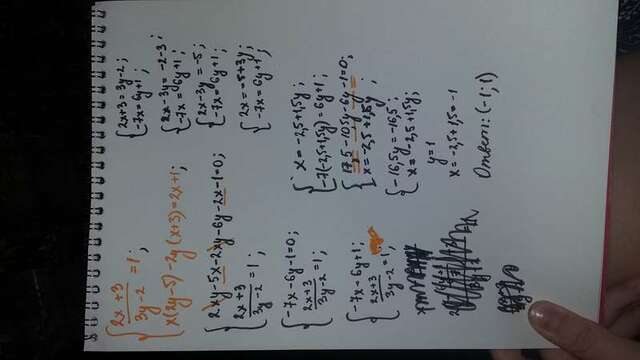 { (2x + 3)/(3y - 2) = 1 ;
x(2y-5) - 2y(x+3) = 2x+1 ;
{ 2xy - 5x - 2xy - 6y - 2x - 1 = 0 ;
(2x + 3)/(3y - 2) = 1 ;
{ -7x - 6y - 1 = 0 ;
(2x + 3)/(3y - 2) = 1 ;
{ -7x - 6y + 1 ;
(2x + 3)/(3y - 2) = 1 ;
{ 2x + 3 = 3y - 2 ;
-7x = 6y + 1 ;
{ 2x - 3y = -2 - 3 ;
-7x = 6y + 1 ;
{ 2x - 3y = -5 ;
-7x = 6y + 1 ;
{ 2x = -5 + 3y ;
-7x = 6y + 1 ;
{ x = -2,5 + 1,5y ;
-7(-2,5 + 1,5y) = 6y + 1 ;
{ 17,5 - 10,5y - 6y - 1 = 0 ;
x = -2,5 + 1,5y ;
{ -16,5y = -16,5 ;
x = -2,5 + 1,5y ;
y = 1
x = -2,5 + 1,5 = -1
Ответ: (-1 ; 1)